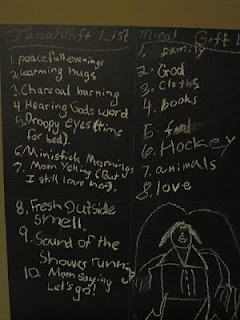 Jonah Gift List
1. peacefull evenings
2. warming hugs
3. Charcoal burning
4 Hearing Gods word
5. Droopy Eyes (time
for bed).
6. Ministick Mornings
7. Mom Yelling (But
I still love her).
8. Fresh Outside
smell.
9. Sound of the
Shower running
10. Mom saying
Let's go!
Gift L
1. family
2. God
3. Cloths
4. books
5.
6. Hockey
7. animals
8. love